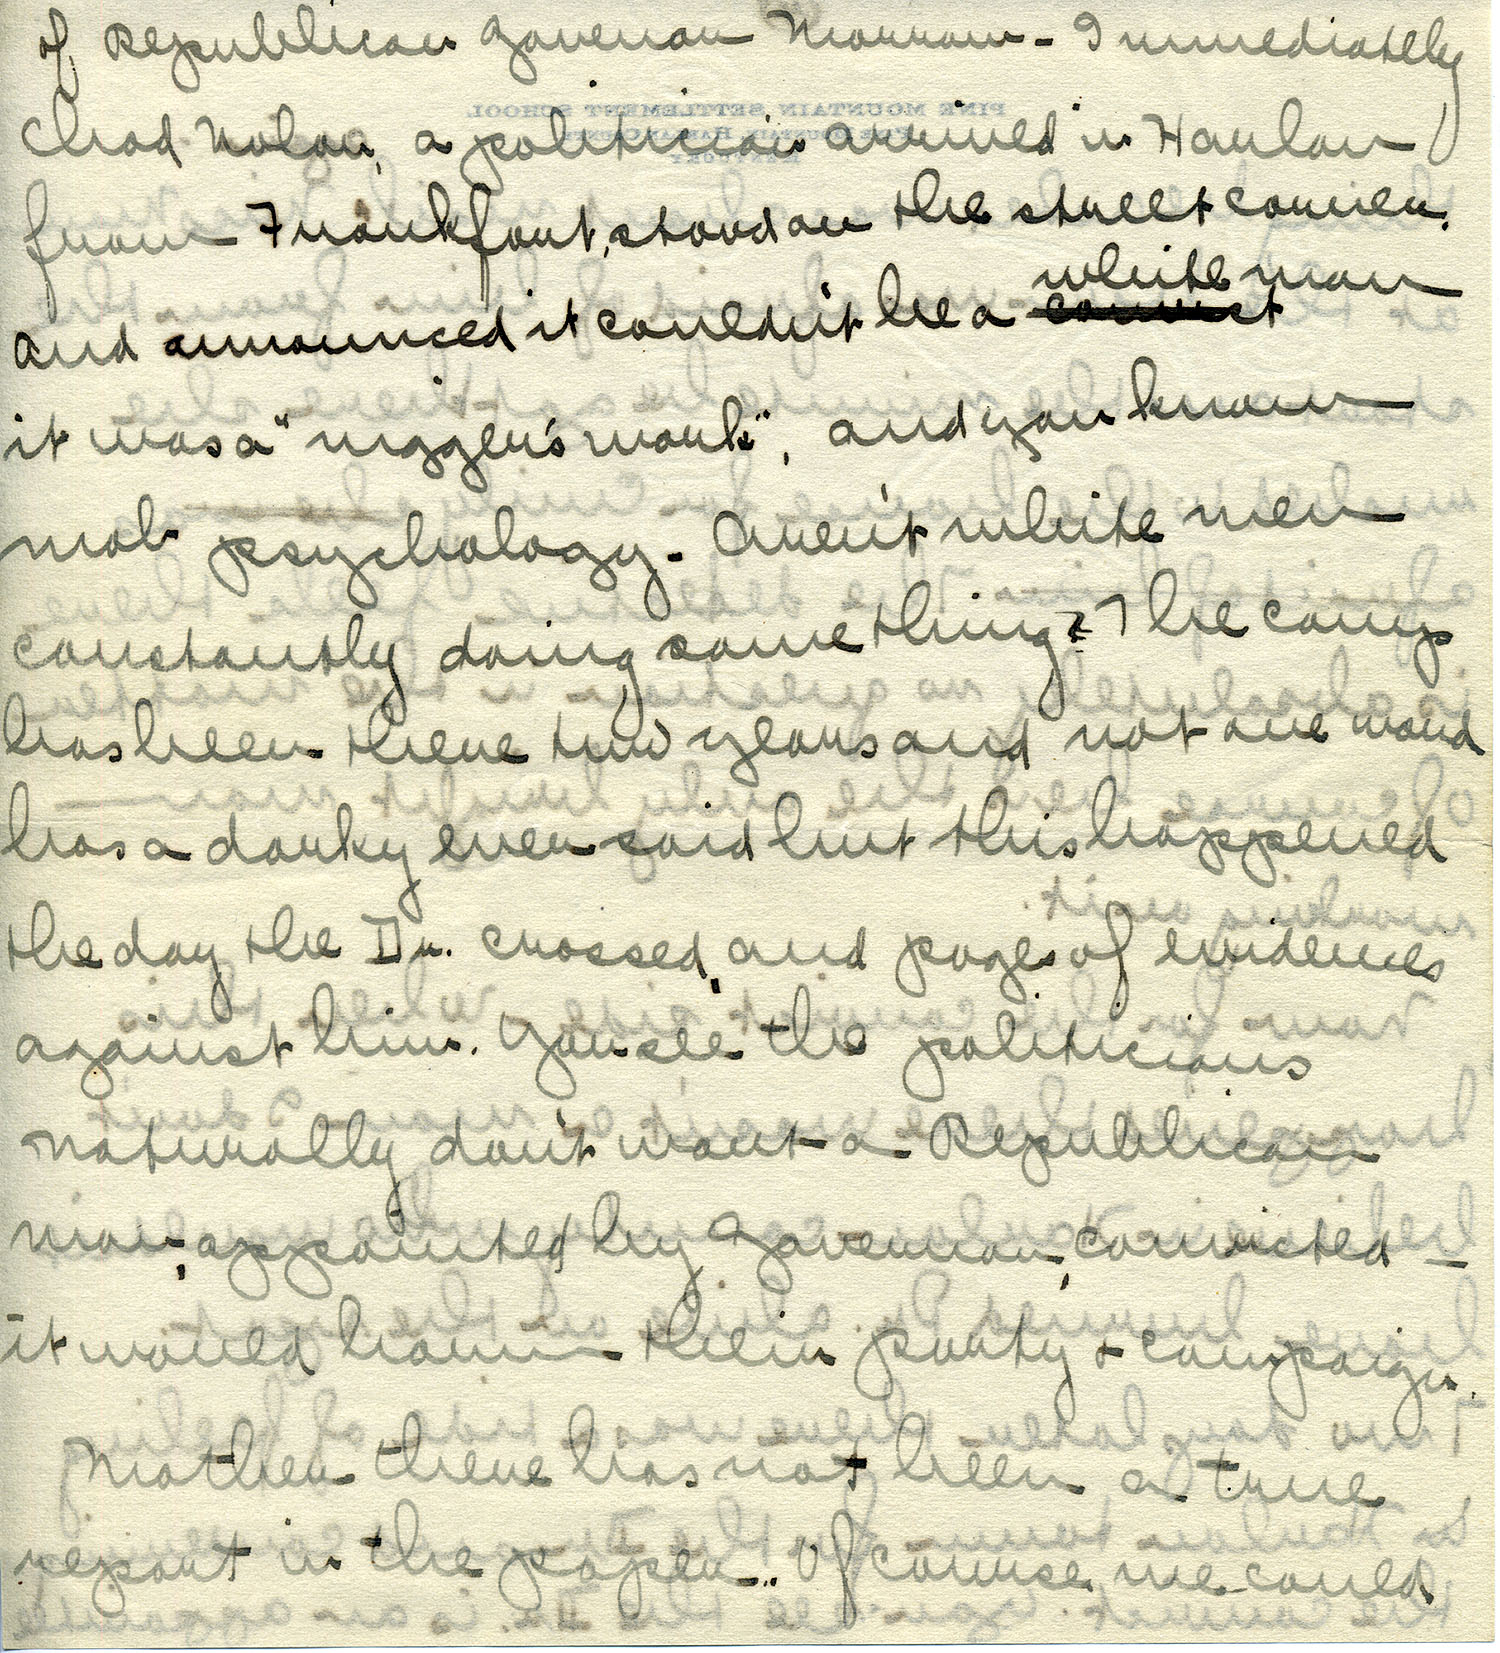 of Republican Governor Morrow - Immediately
PINE MOUNTAIN SETTLEMENT SCHOOL
Chad Nolan, a politician arrived in Harlan
KENTUCKY
from Frankfort, stood on the street corner,
white man
and announced it couldn't be a convict
it was a "nigger's work", and you know
mob psychology - Aren't white men
constantly doing same thing? The camp
has been there two years and not one word
has a darky ever said but this happened
the day the Dr. crossed, and pages of evidences
against him. You see the politicians
naturally don't want a Republican
man, appointed by Governor, convicted -
it would harm their party & campaign.
Mother there has not been a true
report in the paper.. Of course we could